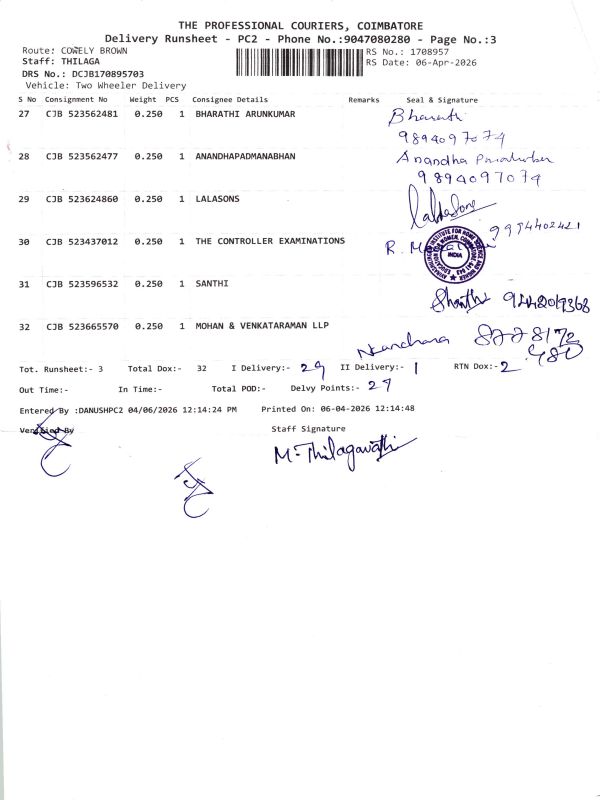 THE PROFESSIONAL COURIERS, COIMBATORE
Delivery Runsheet - PC2 - Phone No.:9047080280 - Page No.:3
Route: COWELY BROWN RS No.: 1708957
Staff: THILAGA RS Date: 06-Apr-2026
DRS No.: DCJB170895703
Vehicle: Two Wheeler Delivery
S No Consignment No Weight PCS Consignee Details Remarks Seal & Signature
27 CJB 523562481 0.250 1 BHARATHI ARUNKUMAR Bharathi
9894097074
28 CJB 523562477 0.250 1 ANANDHAPADMANABHAN Anandha
9894097074
29 CJB 523624860 0.250 1 LALASONS
30 CJB 523437012 0.250 1 THE CONTROLLER EXAMINATIONS R.
INDIA
31 CJB 523596532 0.250 1 SANTHI
32 CJB 523665570 0.250 1 MOHAN & VENKATARAMAN LLP
Tot. Runsheet:- 3 Total Dox:- 32 I Delivery:- 29 II Delivery:- 1 RTN Dox:- 2
Out Time:- In Time:- Total POD:- Delvy Points:- 27
Entered By :DANUSHPC2 04/06/2026 12:14:24 PM Printed On: 06-04-2026 12:14:48
Verified By Staff Signature
M. Thilagavathi